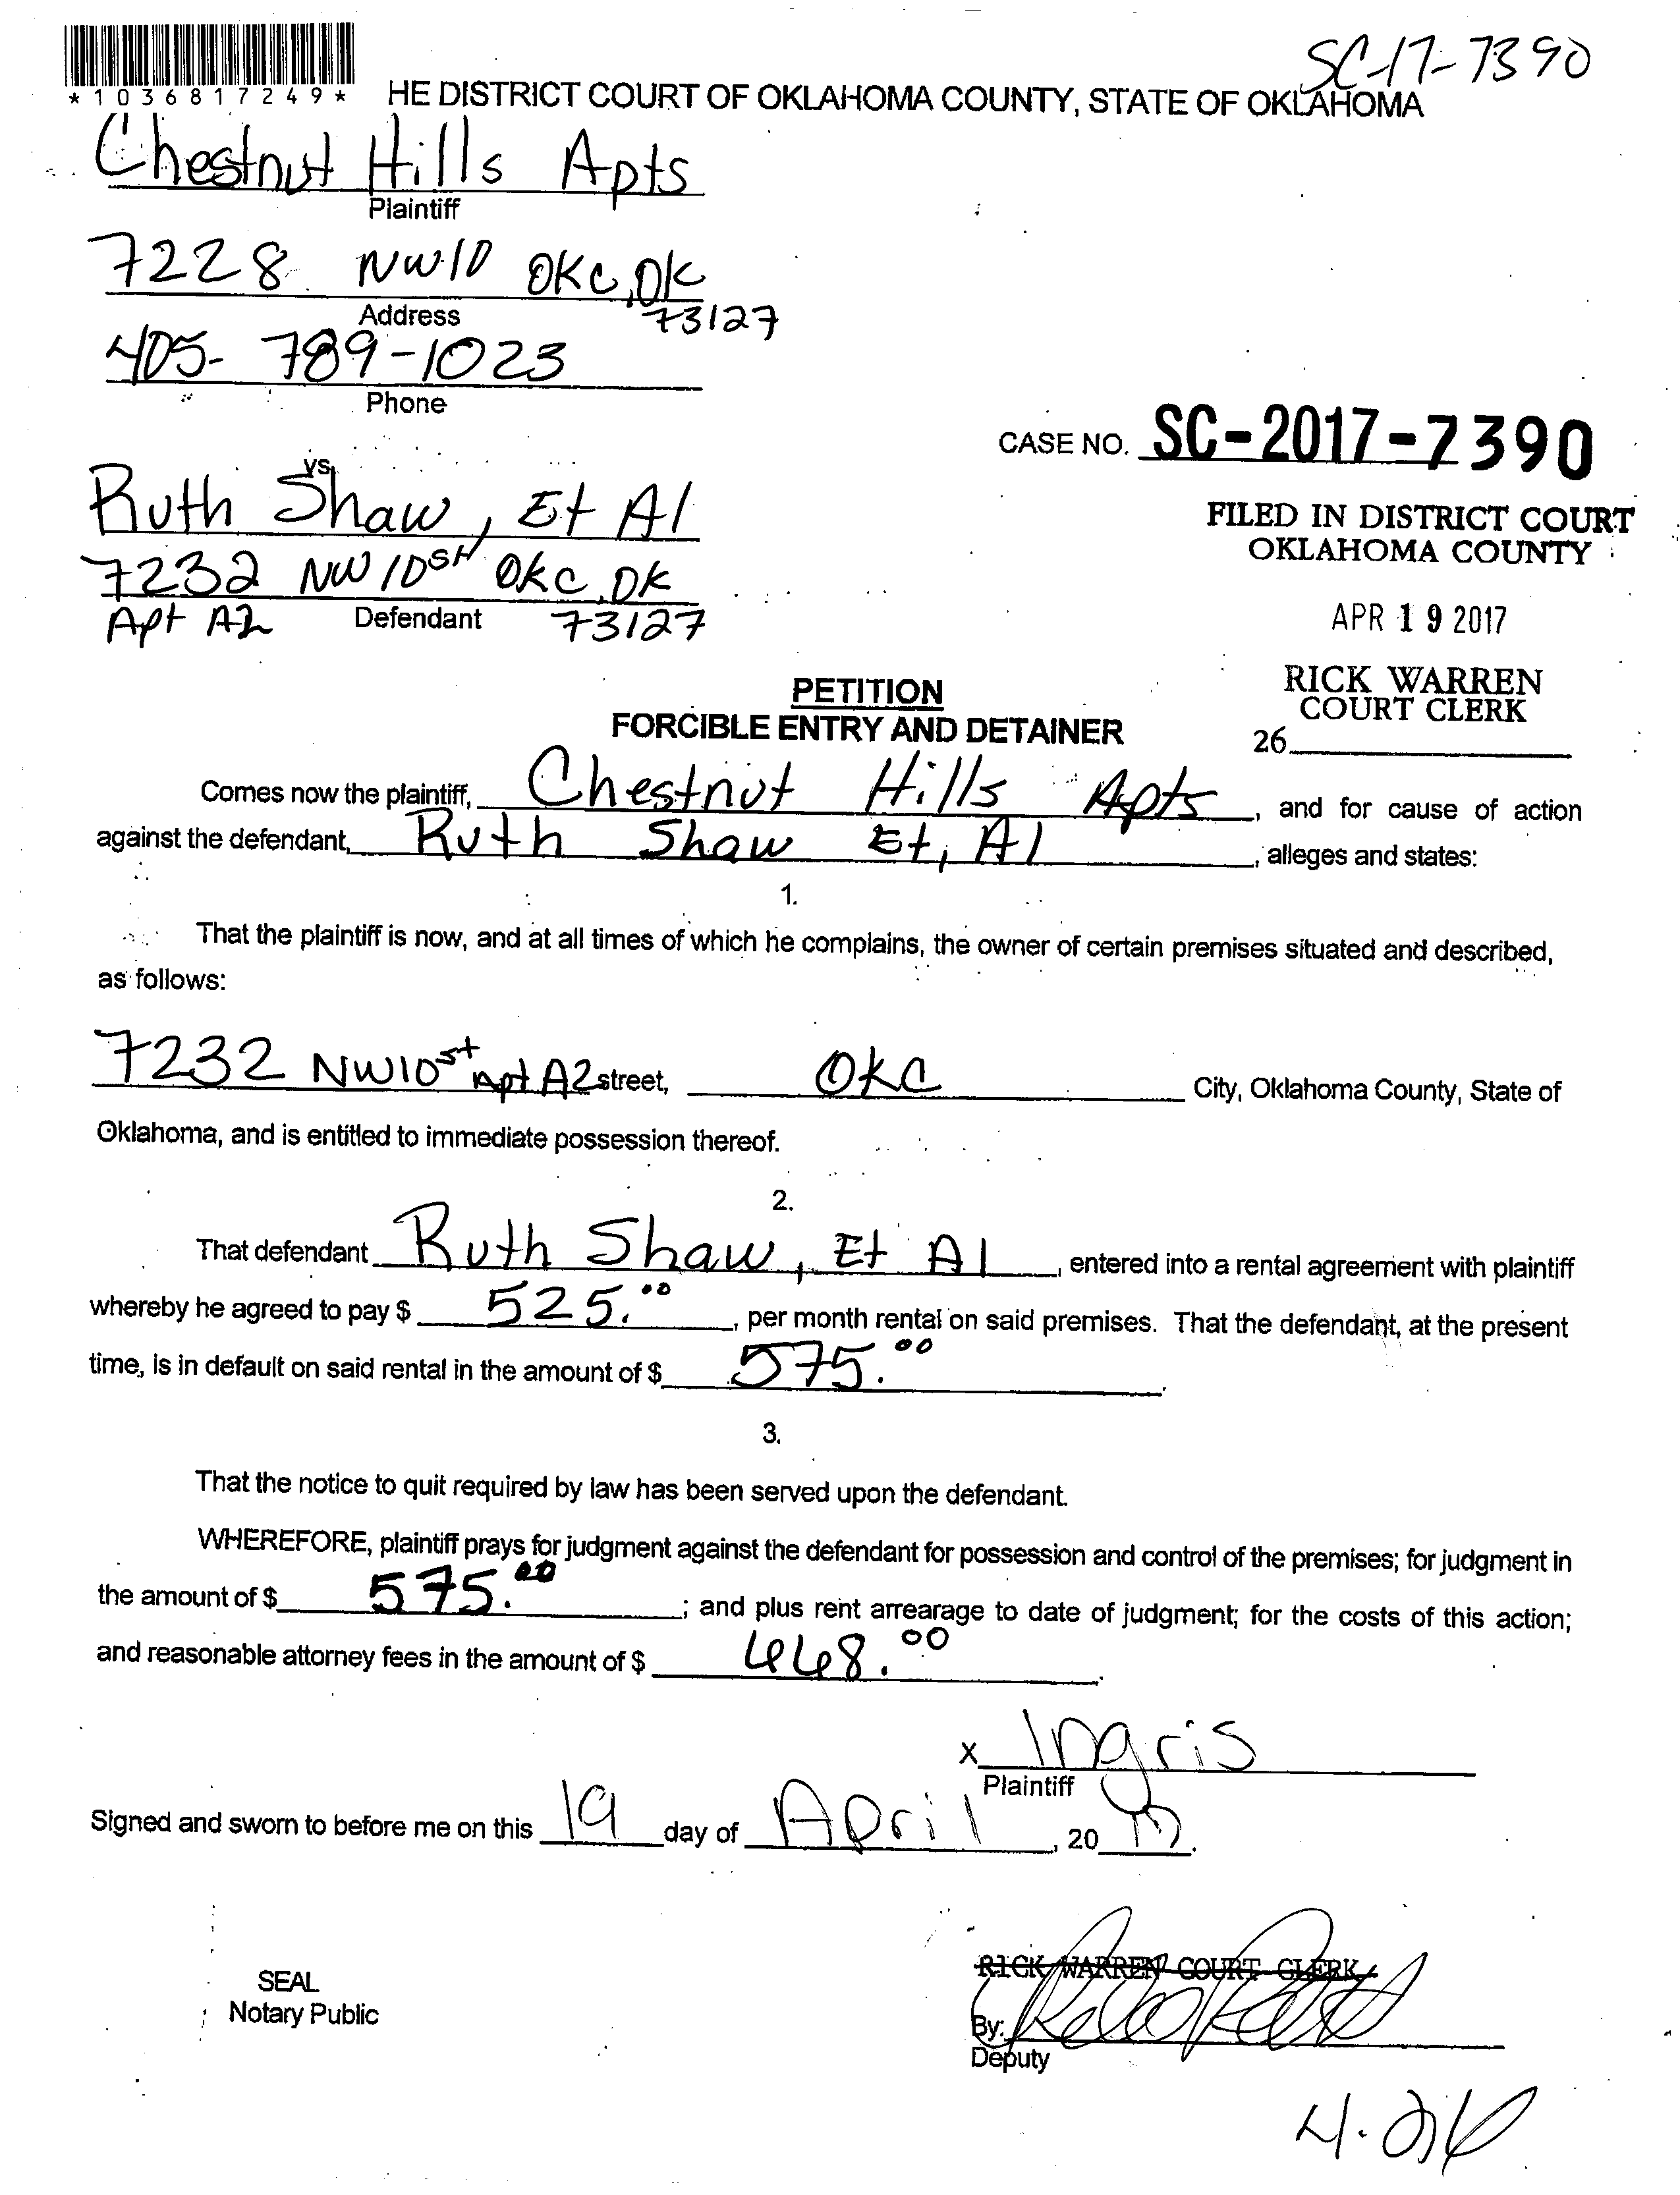 SC-17-7390
*1036817249*
HE DISTRICT COURT OF OKLAHOMA COUNTY, STATE OF OKLAHOMA
Chestnut Hills Apts
Plaintiff
7228 NW10 OKC, OK
Address
73127
405-789-1023
Phone
CASE NO. SC-2017-7390
vs.
Ruth Shaw, Et Al
FILED IN DISTRICT COURT
OKLAHOMA COUNTY
7232 NW 10st OKC, OK
Apt A2 Defendant 73127
APR 19 2017
RICK WARREN
COURT CLERK
26
PETITION
FORCIBLE ENTRY AND DETAINER
Comes now the plaintiff, Chestnut Hills Apts, and for cause of action
against the defendant, Ruth Shaw Et, Al, alleges and states:
1.
That the plaintiff is now, and at all times of which he complains, the owner of certain premises situated and described,
as follows:
7232 NW10st Apt A2 street, OKC City, Oklahoma County, State of
Oklahoma, and is entitled to immediate possession thereof.
2.
That defendant Ruth Shaw, Et Al, entered into a rental agreement with plaintiff
whereby he agreed to pay $ 525.00, per month rental on said premises. That the defendant, at the present
time, is in default on said rental in the amount of $ 575.00
3.
That the notice to quit required by law has been served upon the defendant.
WHEREFORE, plaintiff prays for judgment against the defendant for possession and control of the premises; for judgment in
the amount of $ 575.00; and plus rent arrearage to date of judgment; for the costs of this action;
and reasonable attorney fees in the amount of $ 448.00.
X Ingris
Plaintiff
Signed and sworn to before me on this 19 day of April, 20 17.
SEAL
Notary Public
RICK WARREN COURT CLERK
By:
Deputy